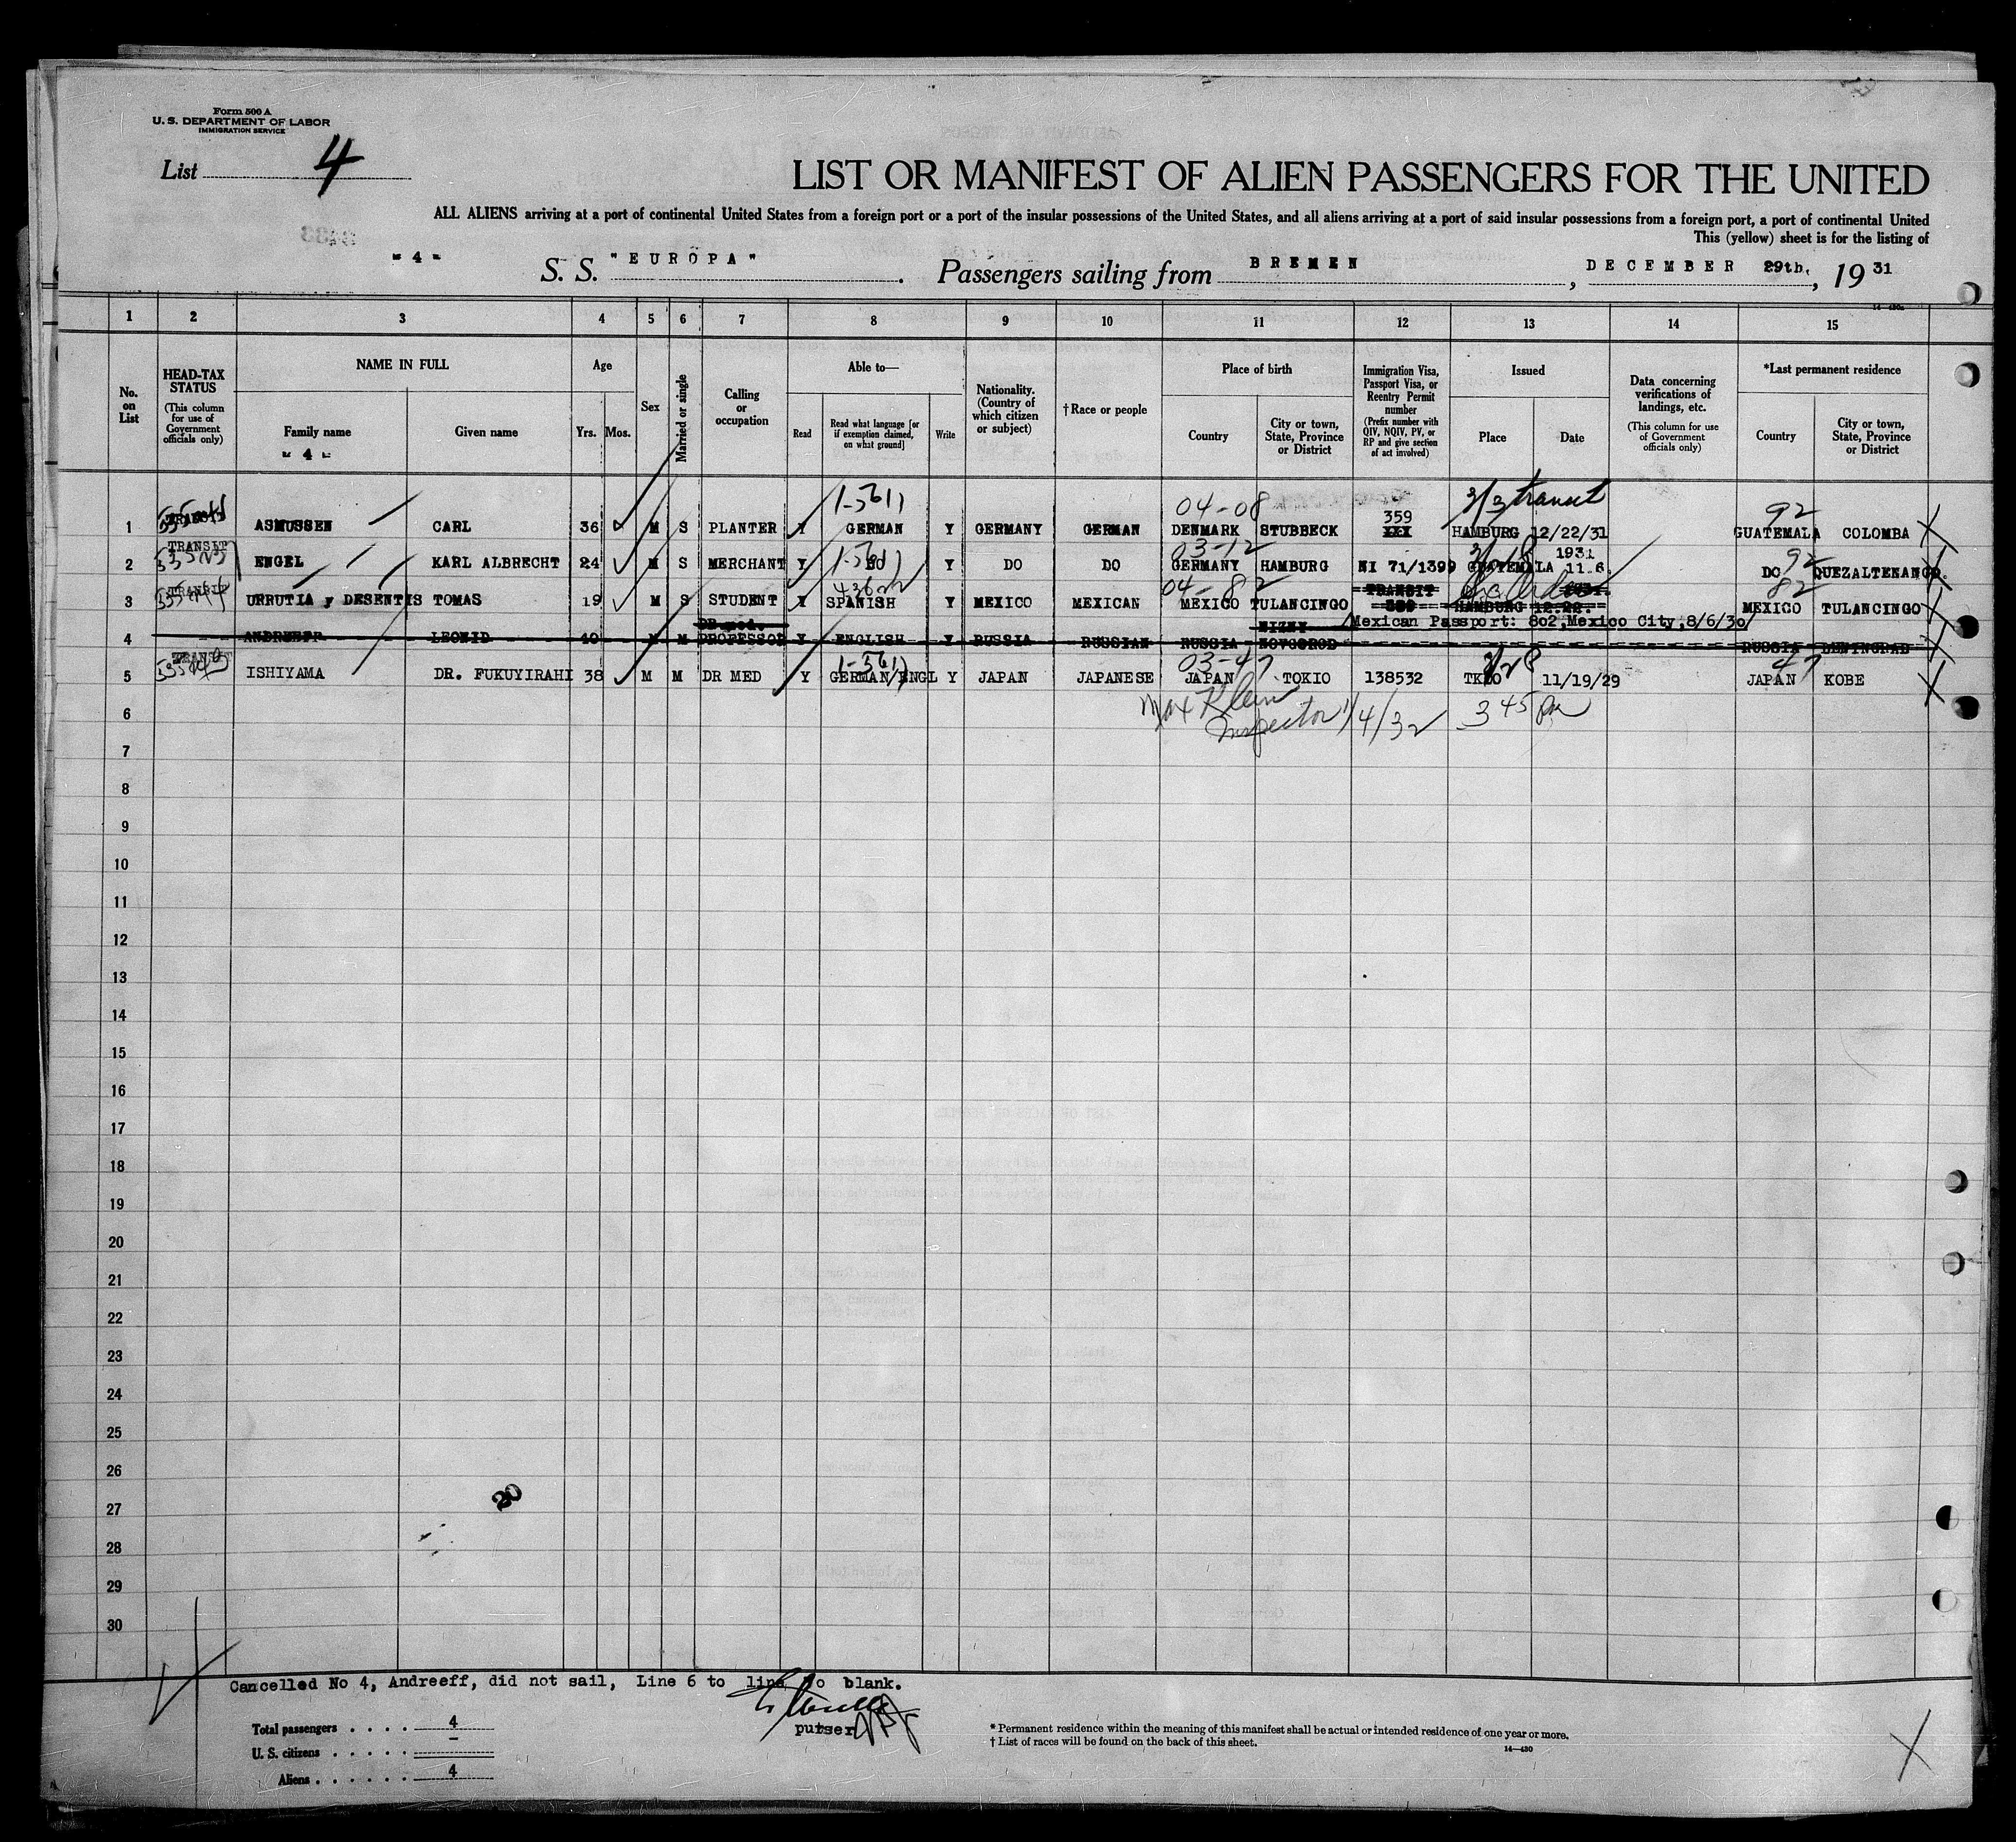 Form 500 A
U. S. DEPARTMENT OF LABOR
IMMIGRATION SERVICE
List 4
LIST OR MANIFEST OF ALIEN PASSENGERS FOR THE UNITED
ALL ALIENS arriving at a port of continental United States from a foreign port or a port of the insular possessions of the United States, and all aliens arriving at a port of said insular possessions from a foreign port, a port of continental United
This (yellow) sheet is for the listing of
- 4 - S. S. "EUROPA". Passengers sailing from BREMEN, DECEMBER 29th, 1931
1 2 3 4 5 6 7 8 9 10 11 12 13 14 15
No. on List
HEAD-TAX STATUS (This column for use of Government officials only)
NAME IN FULL
Family name
- 4 -
Given name
Age
Yrs. Mos.
Sex
Married or single
Calling or occupation
Able to—
Read
Read what language [or if exemption claimed, on what ground]
Write
Nationality. (Country of which citizen or subject)
† Race or people
Place of birth
Country
City or town, State, Province or District
Immigration Visa, Passport Visa, or Reentry Permit number (Prefix number with QIV, NQIV, PV, or RP and give section of act involved)
Issued
Place
Date
Data concerning verifications of landings, etc. (This column for use of Government officials only)
*Last permanent residence
Country
City or town, State, Province or District
04-08 3/3 transit 92
1 TRANSIT ASMUSSEN CARL 36 M S PLANTER Y GERMAN Y GERMANY GERMAN DENMARK STUBBECK 359 HAMBURG 12/22/31 GUATEMALA COLOMBA
03-12 92
2 TRANSIT ENGEL KARL ALBRECHT 24 M S MERCHANT Y DO Y DO DO GERMANY HAMBURG NI 71/1399 GUATEMALA 11.6. 1931 DO QUEZALTENANGO.
04-82 82
3 TRANSIT URRUTIA y DESENTIS TOMAS 19 M S STUDENT Y SPANISH Y MEXICO MEXICAN MEXICO TULANCINGO TRANSIT HAMBURG 12.22. MEXICO TULANCINGO
/Mexican Passport: 802, Mexico City, 8/6/30/
4 ANDREEFF LEONID 40 M M DR med. PROFESSOR Y ENGLISH Y RUSSIA RUSSIAN RUSSIA NIZNY NOVGOROD RUSSIA LENINGRAD
03-47 47
5 TRANSIT ISHIYAMA DR. FUKUYIRAHI 38 M M DR MED Y GERMAN/ENGL Y JAPAN JAPANESE JAPAN TOKIO 138532 TKIO 11/19/29 JAPAN KOBE
6 Max Klein
Inspector 1/4/32 3 45 Pm
7
8
9
10
11
12
13
14
15
16
17
18
19
20
21
22
23
24
25
26
20
27
28
29
30
Cancelled No 4, Andreeff, did not sail, Line 6 to line 30 blank.
purser
Total passengers . . . . 4
U. S. citizens . . . . . -
Aliens . . . . . . 4
* Permanent residence within the meaning of this manifest shall be actual or intended residence of one year or more.
† List of races will be found on the back of this sheet.
14—430